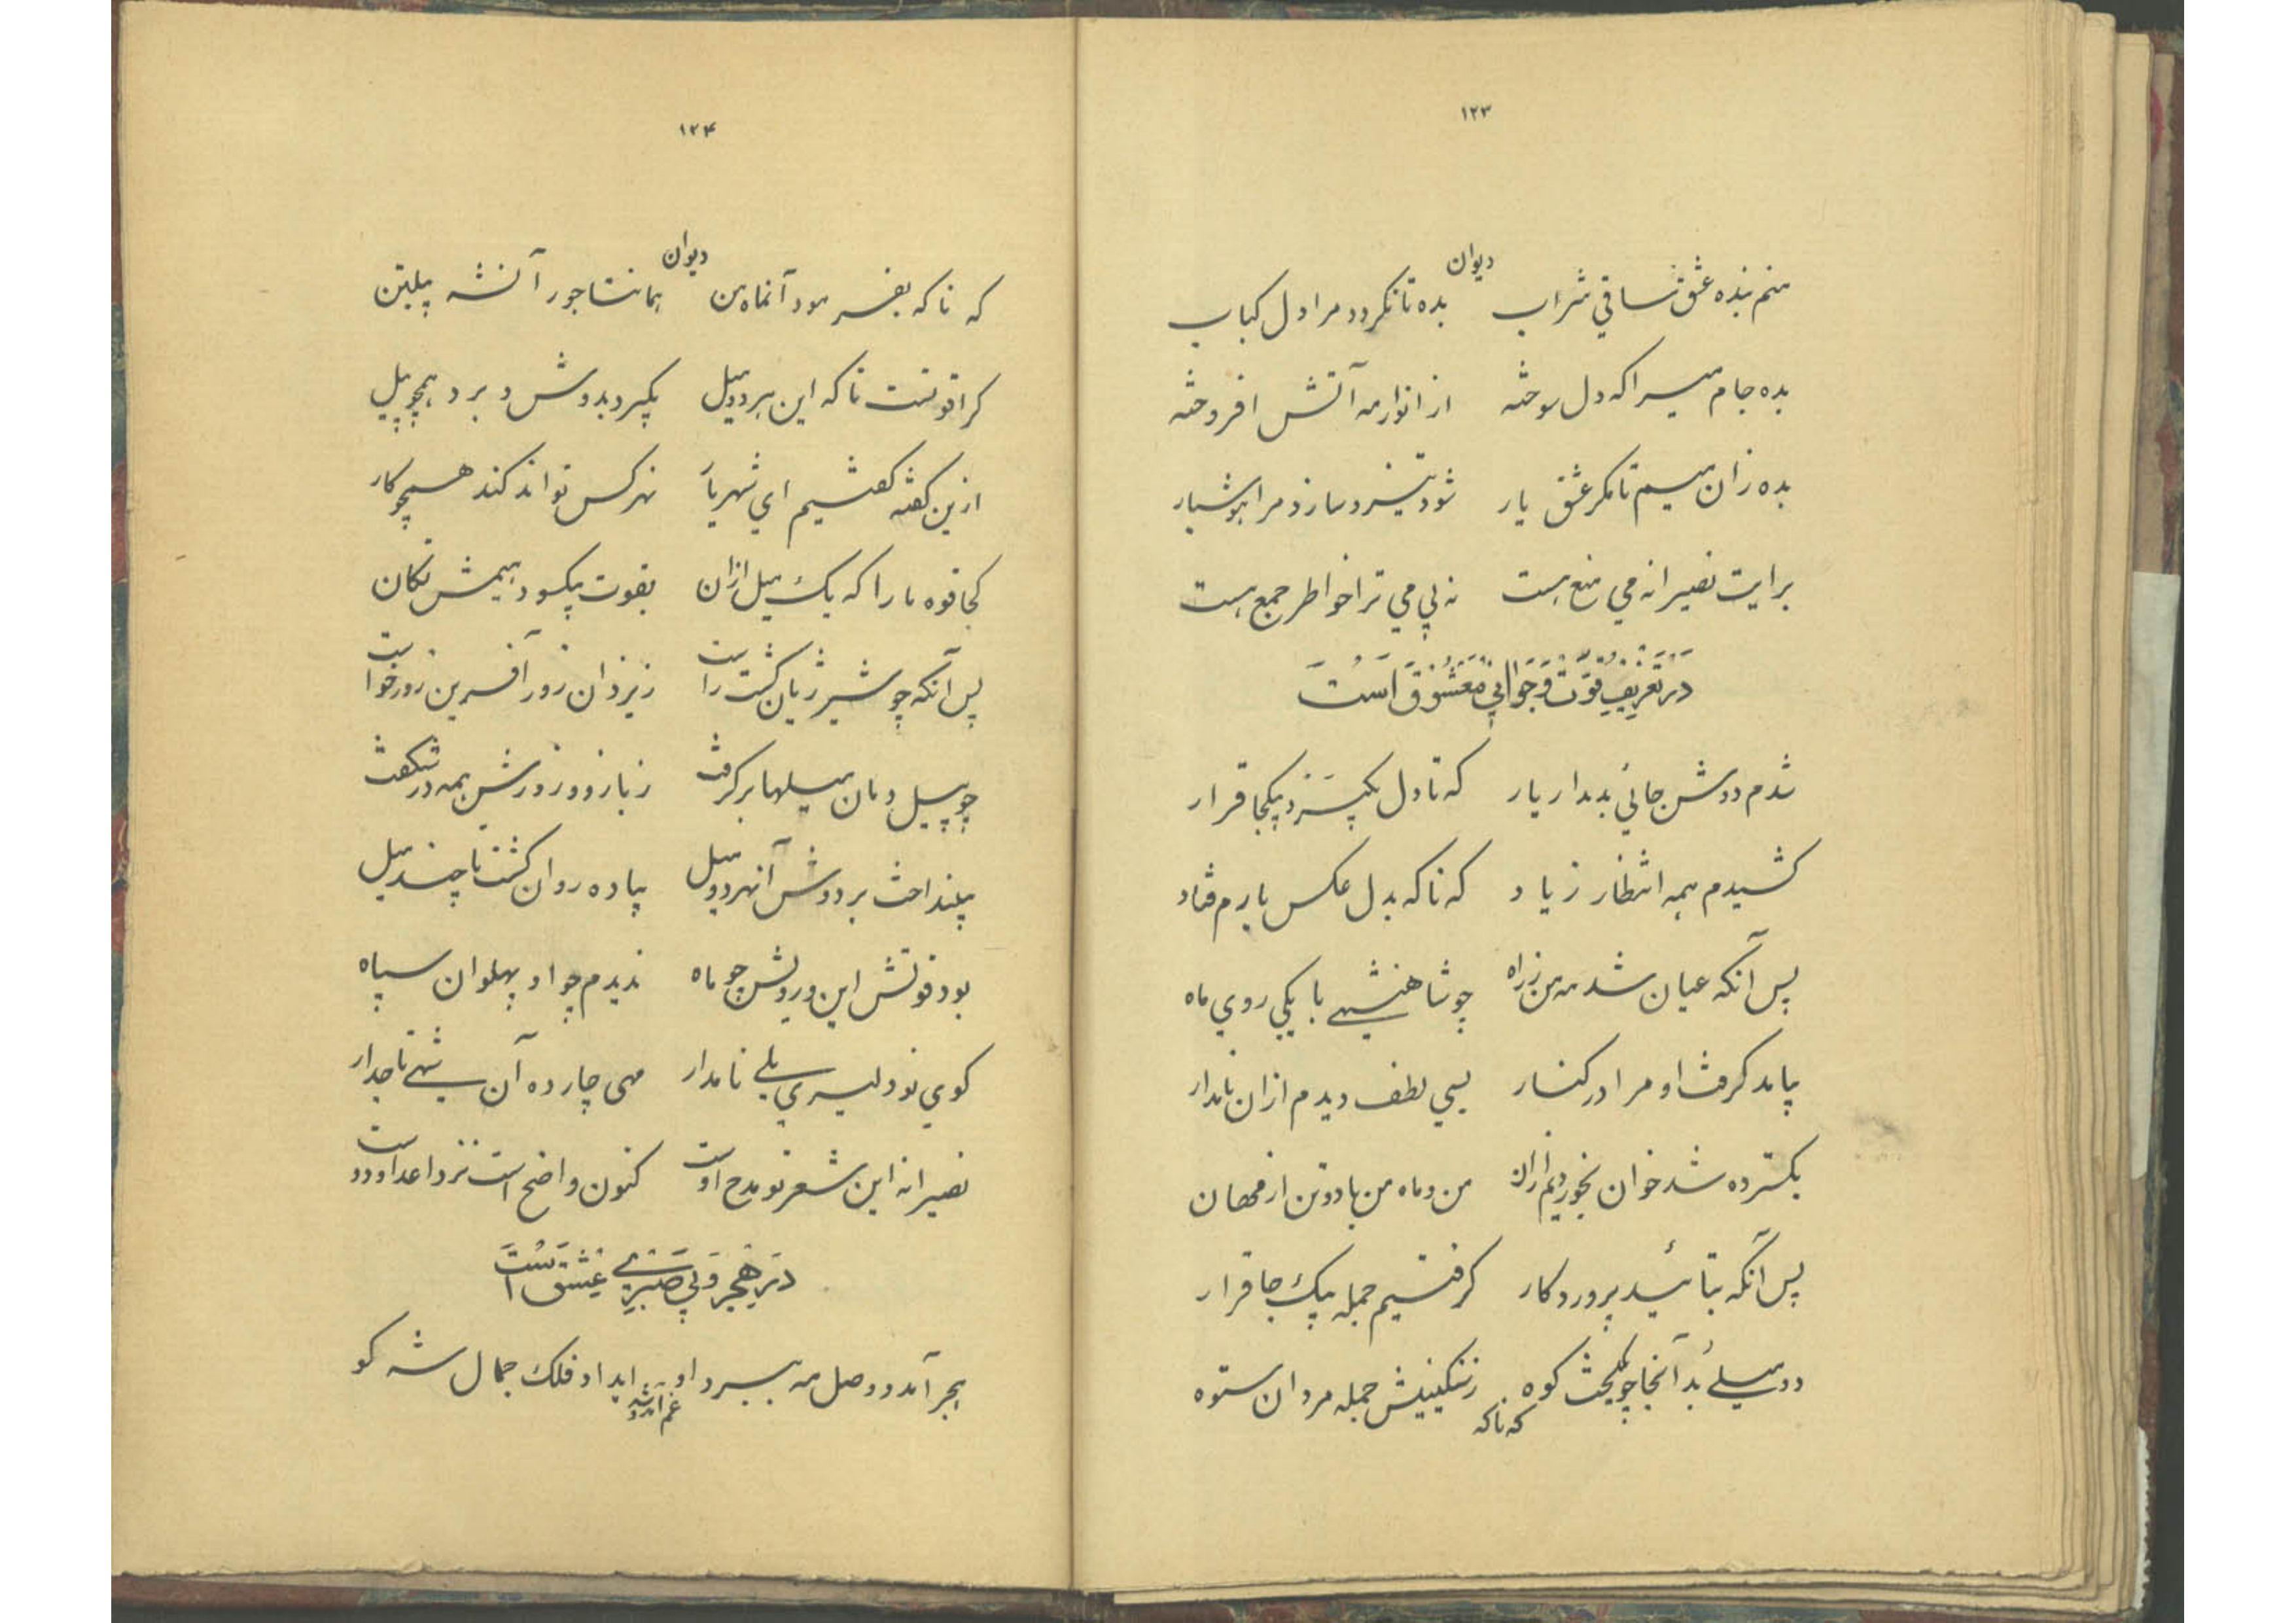 ۱۲۳
دیوان
منم بنده عشق ساقي شراب بده تا نکردد مرا دل کباب
بده جام میرا که دل سوخته از انوار مه آتش افروخته
بده زان میم تا مکر عشق یار شود تیز و سازد مرا هوشیار
برایت نصیرا نه مي منع هست نه بي مي ترا خواطر جمع هست
در تعریف قوت و جوانی معشوق است
شدم دوش جائي بدیدار یار که تا دل بکیرد بیکجا قرار
کشیدم همه انتظار زیاد که ناکه بدل عکس یارم فتاد
پس آنکه عیان شد مه من ز راه چو شاهنشهی با یکي روي ماه
بیامد کرفت او مرا در کنار بسي لطف دیدم از ان نامدار
بکسترده شد خوان بخوردیم از ان من و ماه من با دو تن از مهان
پس آنکه بتائید پروردکار کرفتیم جمله بیک جا قرار
دو میلي بُد آنجا چو یکلخت کوه ز سنکینیش جمله مردان ستوه
که ناکه
۱۲۴
دیوان
که ناکه بفرمود آنماه من بمانند جور آنشه پیلتن
کرا قوتست تا که این هر دو میل بکیرد بدوش و برد همچو پیل
ازین کفته کفتیم اي شهریار نه هرکس تواند کند هیچو کار
کجا قوه ما را که یک میل از ان بقوت بیکسو دهیمش تکان
پس آنکه چو شیر ژیان کشت راست ز یزدان زور آفرین زور خواست
چو پیل دمان میلها بر کرفت ز بازو و زورش همه در شکفت
بینداخت بر دوش آنهر دو میل پیاده روان کشت تا چند میل
بود قوتش این و رویش چو ماه ندیدم چو او پهلوان سپاه
کوي نو دلیري یلی نامدار مهی چارده آن شهی تاجدار
نصیرا نه این شعر تو مدح اوست کنون واضح است نزد اعدا و دوست
در هجر و بی صبری عشق است
هجر آمد و وصل مه ببرد او ایداد فلک جمال شه کو
غم آمد و شد